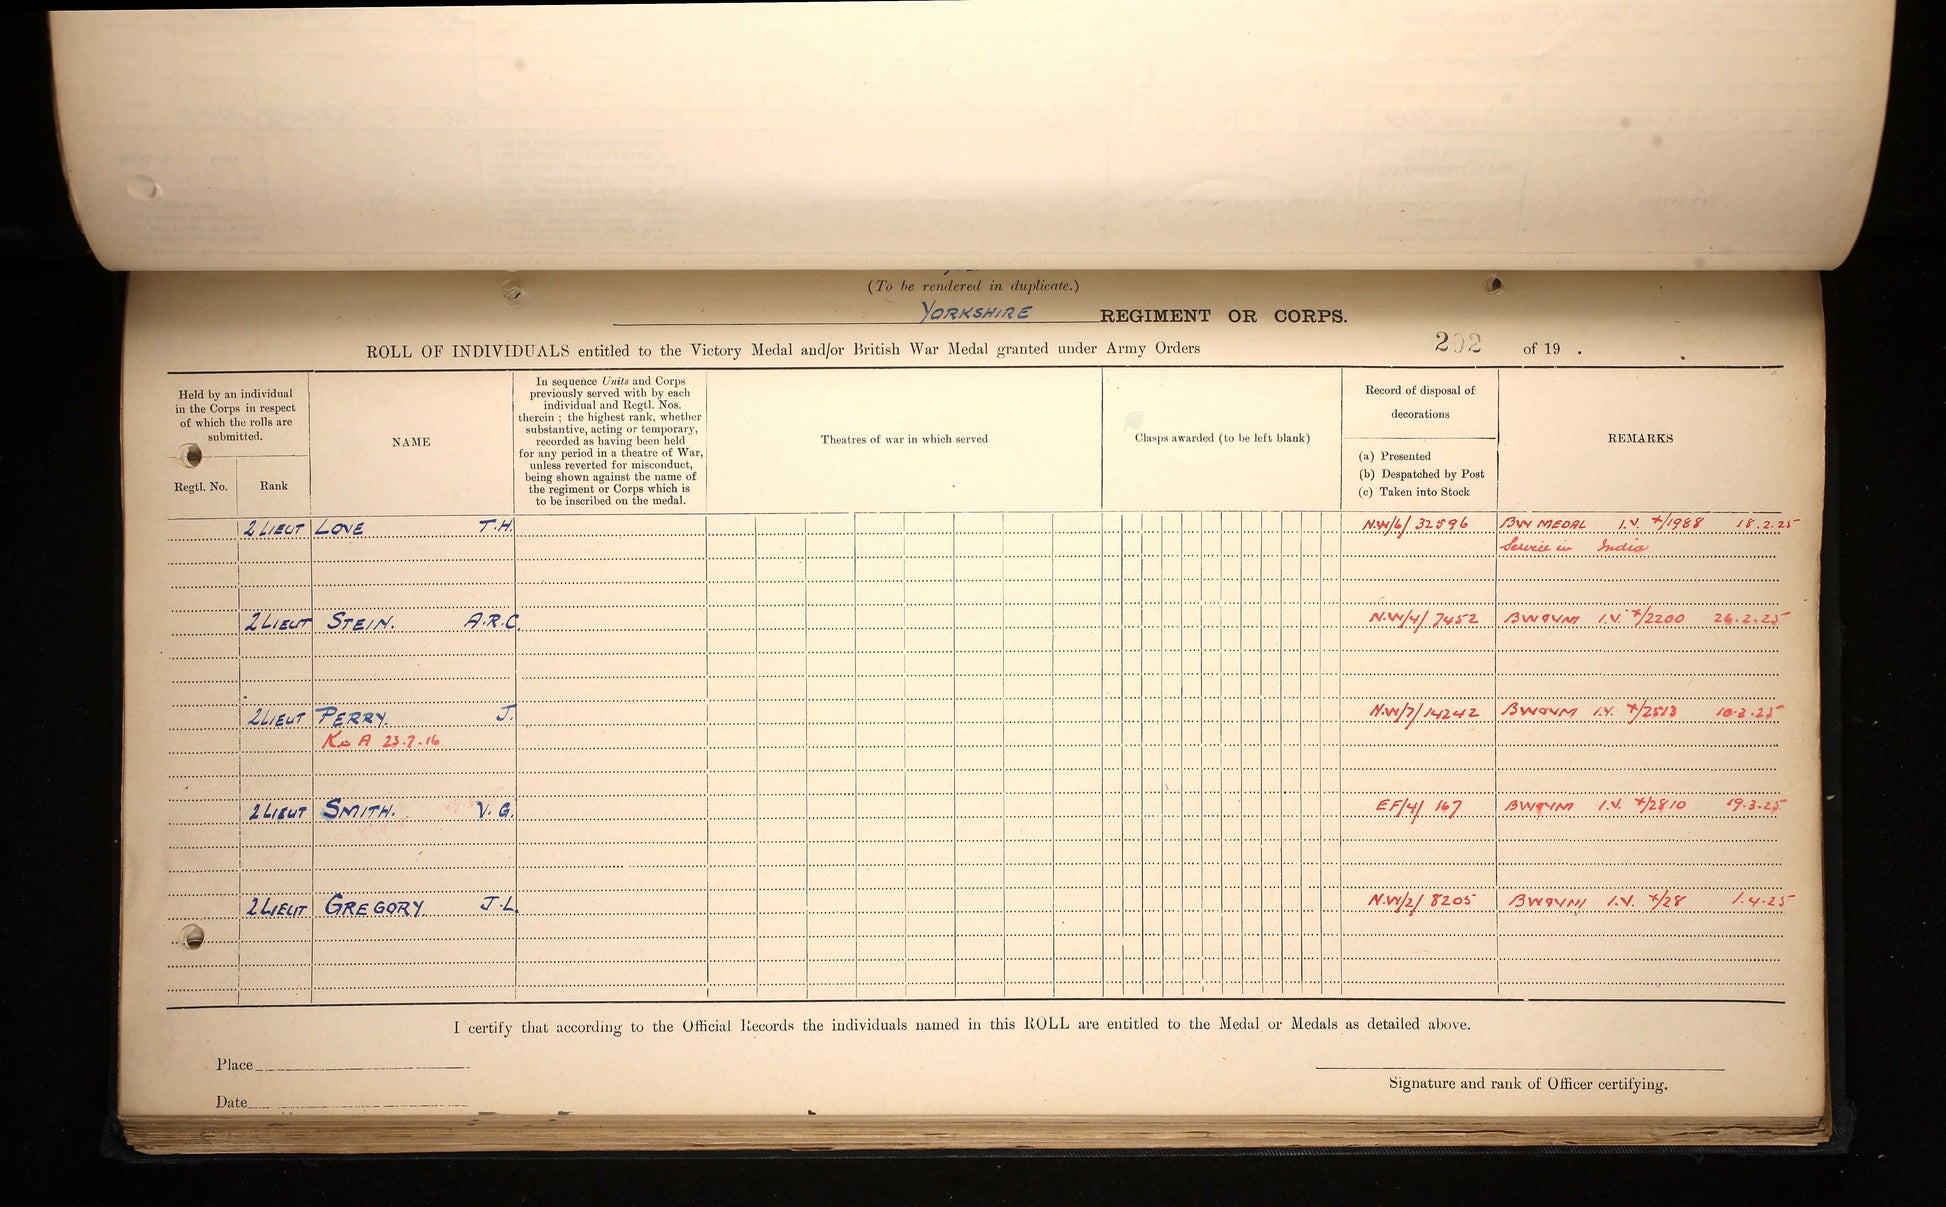 (To be rendered in duplicate.)
YORKSHIRE REGIMENT OR CORPS.
ROLL OF INDIVIDUALS entitled to the Victory Medal and/or British War Medal granted under Army Orders 202 of 19 .
Held by an individual
in the Corps in respect
of which the rolls are
submitted.
Regtl. No. Rank
NAME
In sequence Units and Corps
previously served with by each
individual and Regtl. Nos.
therein ; the highest rank, whether
substantive, acting or temporary,
recorded as having been held
for any period in a theatre of War,
unless reverted for misconduct,
being shown against the name of
the regiment or Corps which is
to be inscribed on the medal.
Theatres of war in which served
Clasps awarded (to be left blank)
Record of disposal of
decorations
(a) Presented
(b) Despatched by Post
(c) Taken into Stock
REMARKS
2 LIEUT LOVE T.H. N.W/6/ 32596 BW MEDAL I.V. X/1988 18.2.25
Service in India
2 LIEUT STEIN. A.R.C. N.W/4/ 7452 BW&VM I.V. X/2200 26.2.25
2 LIEUT PERRY. J. N.W/7/14242 BW&VM I.V. X/2513 10.3.25
K in A 23.7.16
2 LIEUT SMITH. V.G. EF/4/ 167 BW&VM I.V. X/2810 19.3.25
2 LIEUT GREGORY. J.L. N.W/2/ 8205 BW&VM I.V. X/28 1.4.25
I certify that according to the Official Records the individuals named in this ROLL are entitled to the Medal or Medals as detailed above.
Place
Signature and rank of Officer certifying.
Date